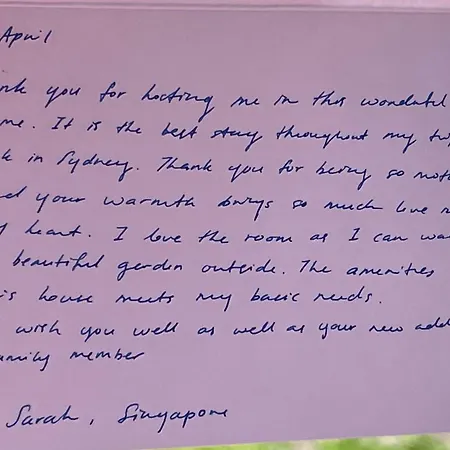 April
nk you for hosting me in this wonderful
me. It is the best stay throughout my
k in Sydney. Thank you for being so
your warmth brings so much love
heart. I love the room as I can
beautiful garden outside. The amenities
is house meets my basic needs.
wish you well as well as your new
amily member
Sarah, Singapore